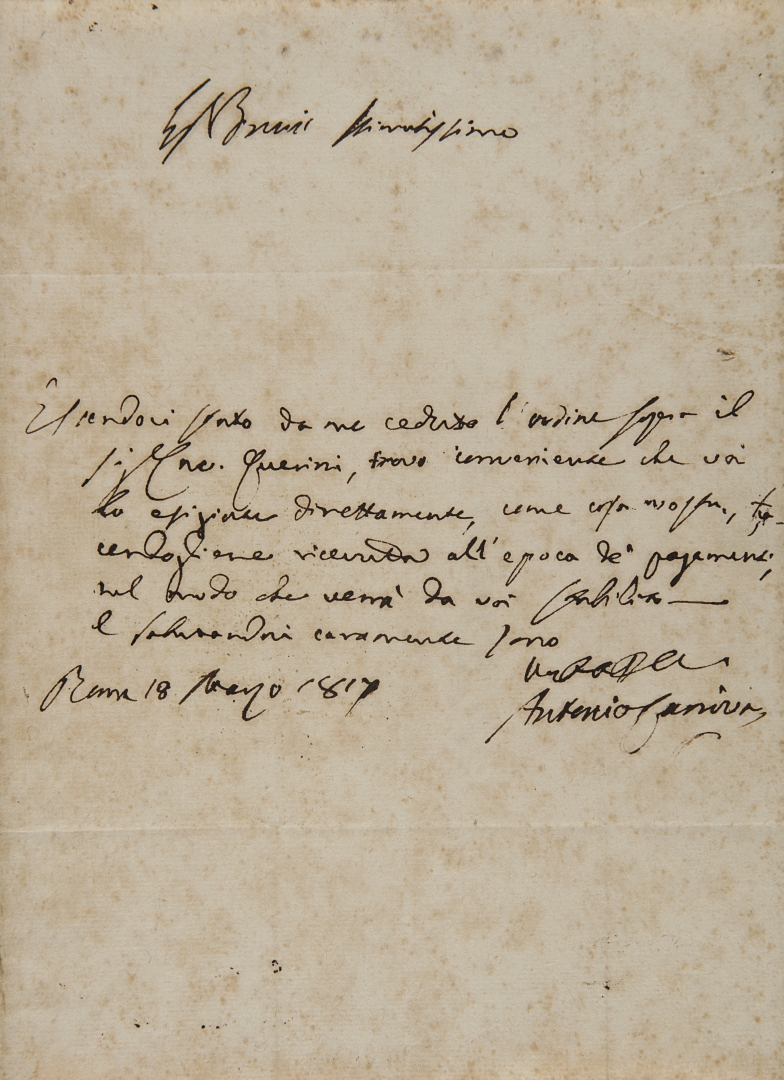 Stimatissimo
Essendovi stato da me ceduto l'ordine sopra il
Sig. Cav. Querini, trovo conveniente che voi
lo esigiate direttamente, come cosa vostra,
cendogliene ricevuta all'epoca de' pagamenti,
nel modo che verrà da voi stabilito —
E salutandovi caramente sono
Roma 18 Marzo 1817
Antonio Canova